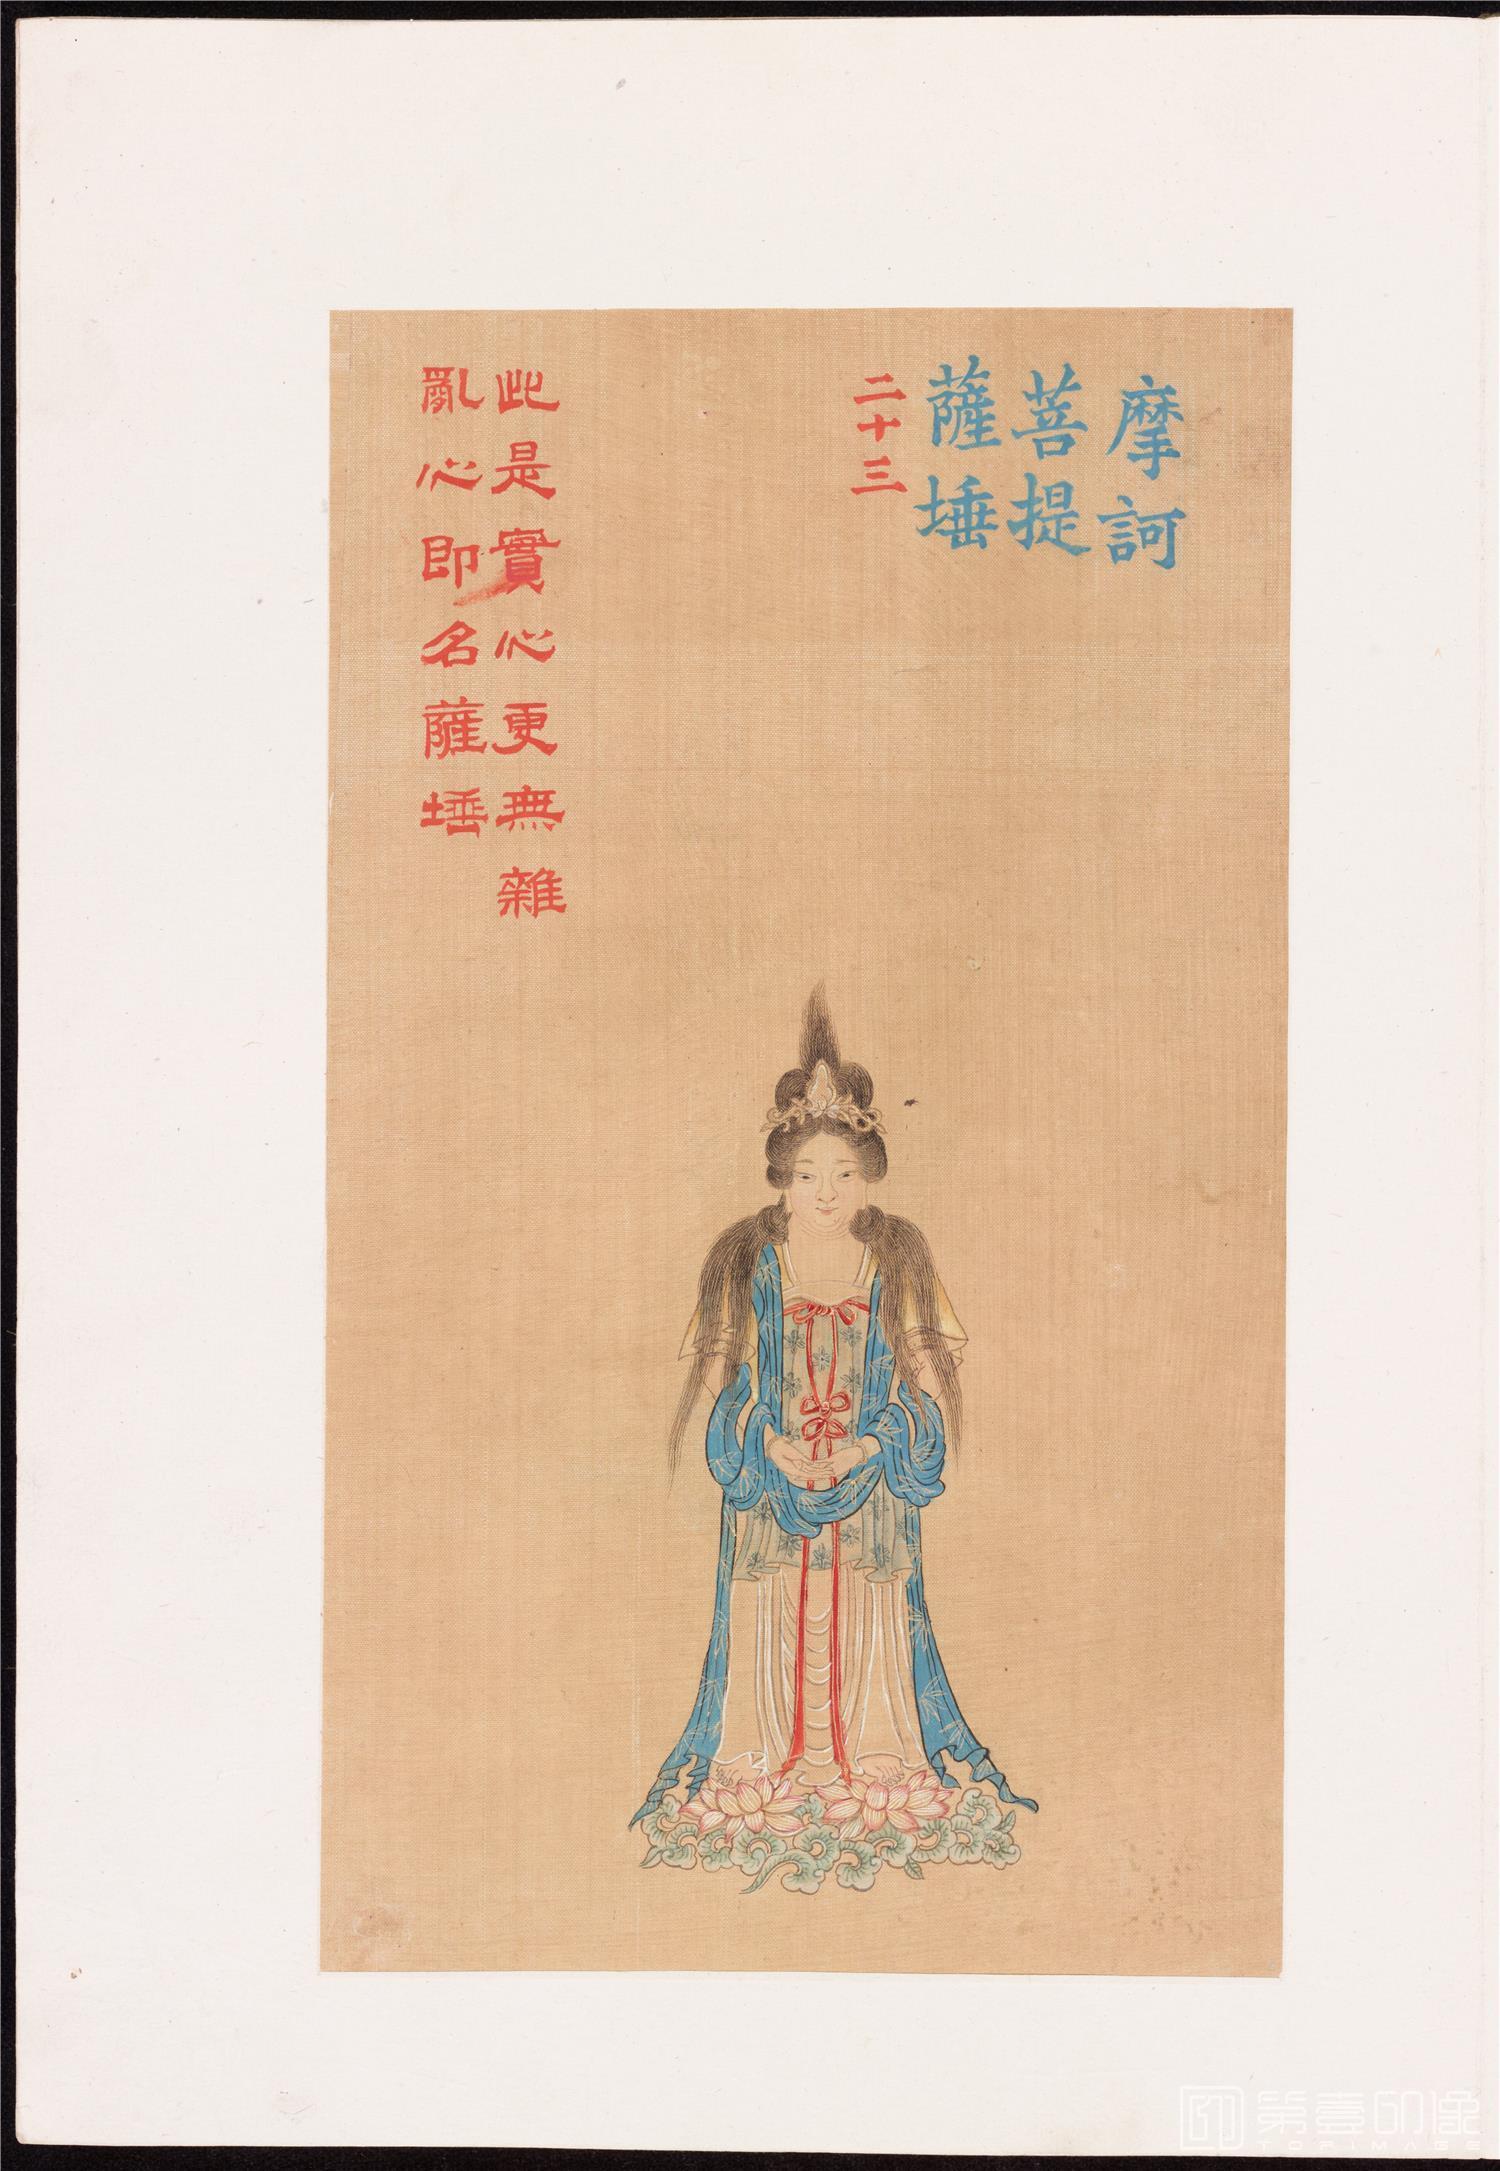 摩訶
菩提
薩埵
二十三
此是實心更無雜
亂心即名薩埵
第壹印像
TOPIMAGE